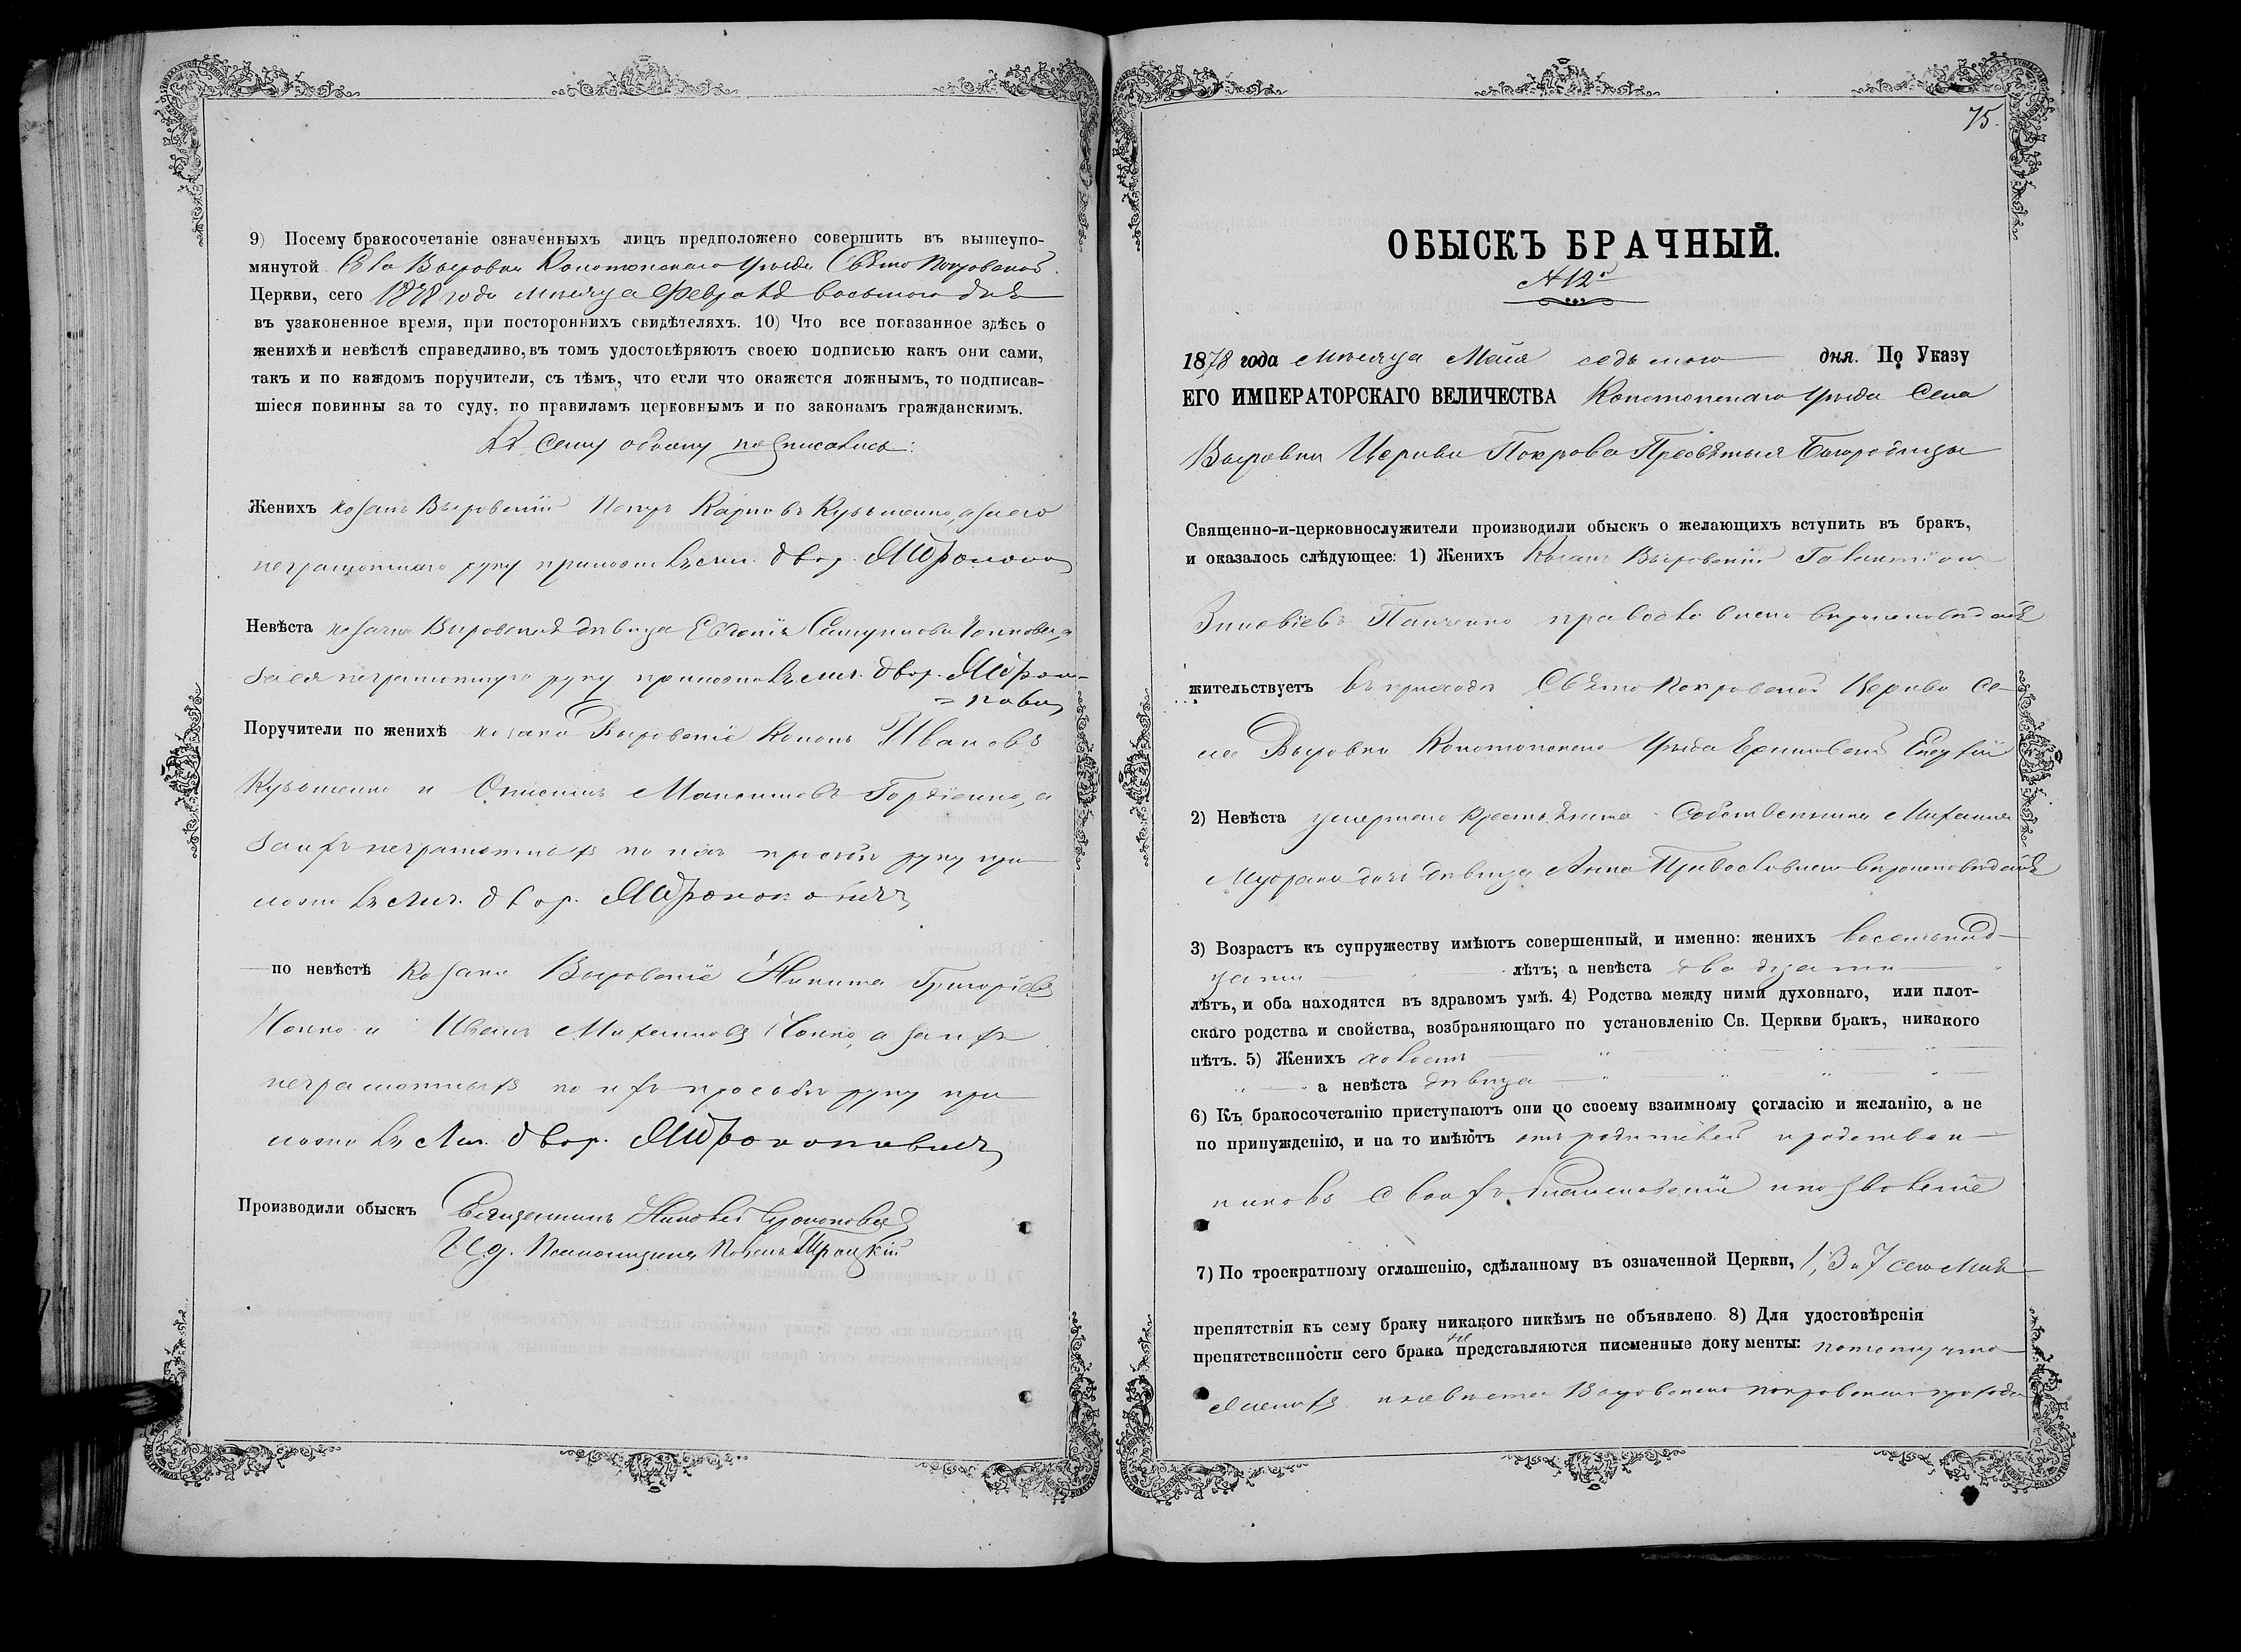 9) Посему бракосочетаніе означенныхъ лицъ предположено совершить въ вышеупо-
мянутой села Выровки Конотопскаго уѣзда Свято Покровской
Церкви, сего 1878 года мѣсяца Февраля восьмого дня
въ узаконенное время, при постороннихъ свидѣтеляхъ. 10) Что все показанное здѣсь о
женихѣ и невѣстѣ справедливо, въ томъ удостовѣряютъ своею подписью какъ они сами,
такъ и по каждомъ поручители, съ тѣмъ, что если что окажется ложнымъ, то подписав-
шіеся повинны за то суду, по правиламъ церковнымъ и по законамъ гражданскимъ.
Къ сему обыску подписались:
Женихъ козакъ Выровскій Петръ Карповъ Кузьменко, а за его
неграмотнаго руку приложилъ двор.
Невѣста козачка Выровская дѣвица Евдокія
за ея неграмотную руку приложилъ двор.
Поручители по женихѣ козаки Выровскіе Кононъ Ивановъ
Кузьменко и Онисимъ Максимовъ Гордіенко, а
за ихъ неграмотныхъ по ихъ просьбѣ руку при
ложилъ двор.
по невѣстѣ Козаки Выровскіе Никита Григорьевъ
и Иванъ Михайловъ а за ихъ
неграмотныхъ по ихъ просьбѣ руку при
ложилъ двор.
Производили обыскъ Священникъ Николай
И. д. Псаломщика Павелъ Троцкій
75.
ОБЫСКЪ БРАЧНЫЙ.
№ 12й
1878 года мѣсяца Мая седьмого дня. По Указу
ЕГО ИМПЕРАТОРСКАГО ВЕЛИЧЕСТВА Конотопскаго уѣзда Села
Выровки Церкви Покрова Пресвятыя Богородицы
Священно-и-церковнослужители производили обыскъ о желающихъ вступить въ бракъ,
и оказалось слѣдующее: 1) Женихъ Козакъ Выровскій Галактіонъ
Зиновіевъ Панченко православнаго вѣроисповѣданія
жительствуетъ въ приходѣ Свято Покровской Церкви се-
ла Выровки Конотопскаго уѣзда Черниговской Епархіи
2) Невѣста умершаго крестьянина Собственника Михаила
дочь дѣвица Анна Православнаго вѣроисповѣданія
3) Возрастъ къ супружеству имѣютъ совершенный, и именно: женихъ восемьнад-
цати лѣтъ; а невѣста двадцати
лѣтъ, и оба находятся въ здравомъ умѣ. 4) Родства между ними духовнаго, или плот-
скаго родства и свойства, возбраняющаго по установленію Св. Церкви бракъ, никакого
нѣтъ. 5) Женихъ холостъ
а невѣста дѣвица
6) Къ бракосочетанію приступаютъ они по своему взаимному согласію и желанію, а не
по принужденію, и на то имѣютъ отъ родителей и родствен-
никовъ своихъ благословеніе и позволеніе
7) По троекратному оглашенію, сдѣланному въ означенной Церкви, 1, 3 и 7 сего Мая
препятствія къ сему браку никакого никѣмъ не объявлено. 8) Для удостовѣренія
препятственности сего брака не представляются писменные документы: потому что
женихъ и невѣста Выровскаго Покровскаго прихода